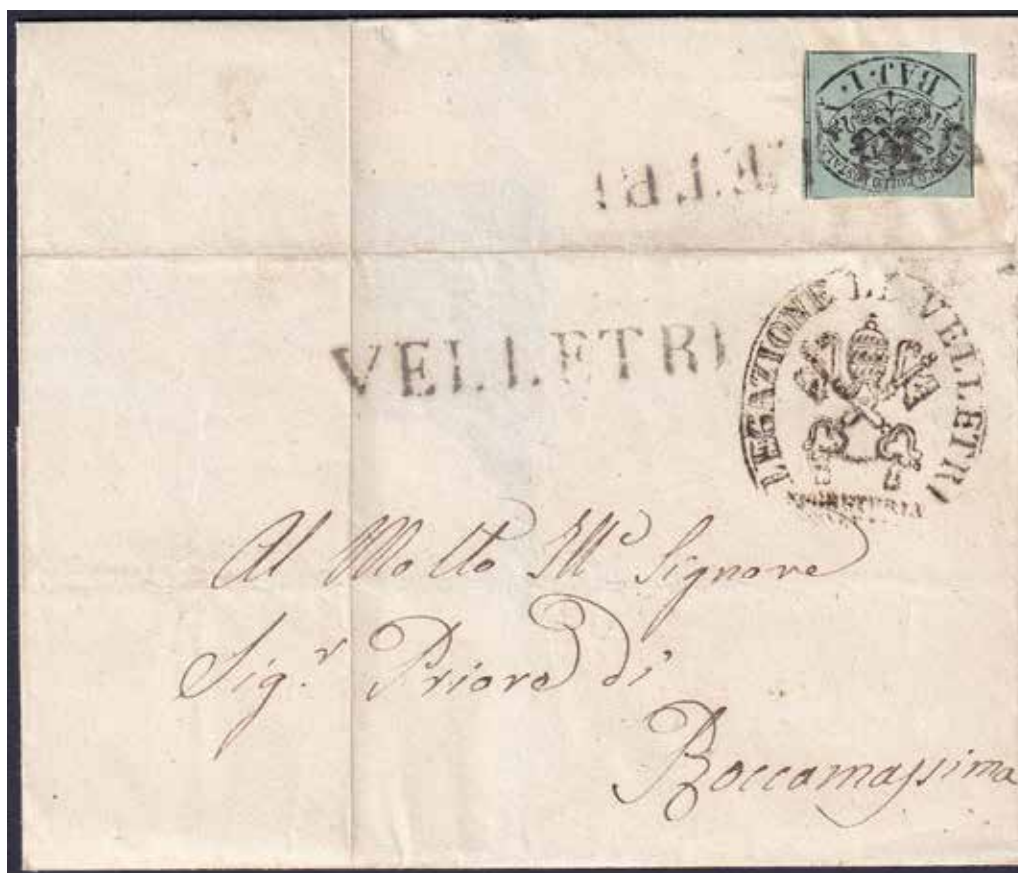 BAJ. 1.
FRANCO BOLLO POSTALE
VELLETRI
LEGAZIONE DI VELLETRI
SEGRETERIA
VELLETRI
Al Molto Ill.e Signore
Sig.r Priore di
Roccamassima